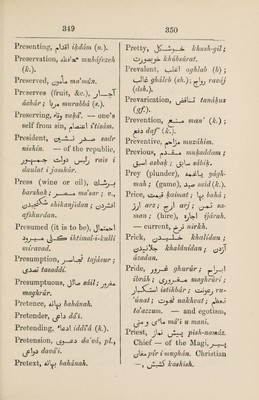 349
350
Presenting, اقدام iḳdám (n.).
Preservation, محافظه muháfezeh
(k.).
Preserved, مأمون ma'mún.
Preserves (fruit, &c.), آچار
áchár; مربا murabbá (s.).
Preserving, وقع — one's
self from sin, اعتصام i'tisám.
President, صدر نشین sadr
nishin. — of the republic,
رئیس دولت جمهور rais i
daulat i jamhúr.
Press (wine or oil),
barahat; ma'sar; v.,
شکانجیدن shikanjidan; افشردن
afshurdan.
Presumed (it is to be), احتمال
کلی میرود ihtimal-i-kulli
míravad.
Presumption, تجاسر tajásur;
تصدی tasaddí.
Presumptuous,
مغرور maghrúr.
Pretence, بهانه bahánah.
Pretender, داعی dá'í.
Pretending, ادعا iddi'á (k.).
Pretension, دعوی da'vá, pl.,
دعاوی davá'í.
Pretext, بهانه bahánah.
Pretty, خوش گل khush-gil;
خوبصورت khúbsúrat.
Prevalent, اغلب aghlab (b);
غالب gháleb (sh.); رواج raváj
(dsh.).
Prevarication, تناقض tanáḳuz
(gf.).
Prevention, منع man' (k.);
دفع daf' (k.).
Preventive, مزاحم muzáhim.
Previous, مقدم muḳaddam;
اسبق asbaḳ; سابق sábiḳ.
Prey (plunder), یغما yágh-
mah; (game), صید said (k.).
Price, قیمت kaimat; بها bahá;
ارز arz; ارج arj; ثمن sa-
man; (hire), اجاره ijárah.
— current, نرخ nirkh.
Prick, خلیدن khalídan;
خلانیدن khalánídan; آژدن
ázadan.
Pride, غرور ghurúr; ابراح
ibráh; مغروری maghrúrí;
استکبار istikbár; رعونت ru-
'únat; نخوت nakhvat; تعظم
ta'azzum. — and egotism,
مائی و منی má'í u maní.
Priest, پیش نماز pish-namáz.
Chief — of the Magi,
پیر مغان pír i mughán. Christian
—, کشیش kashish.